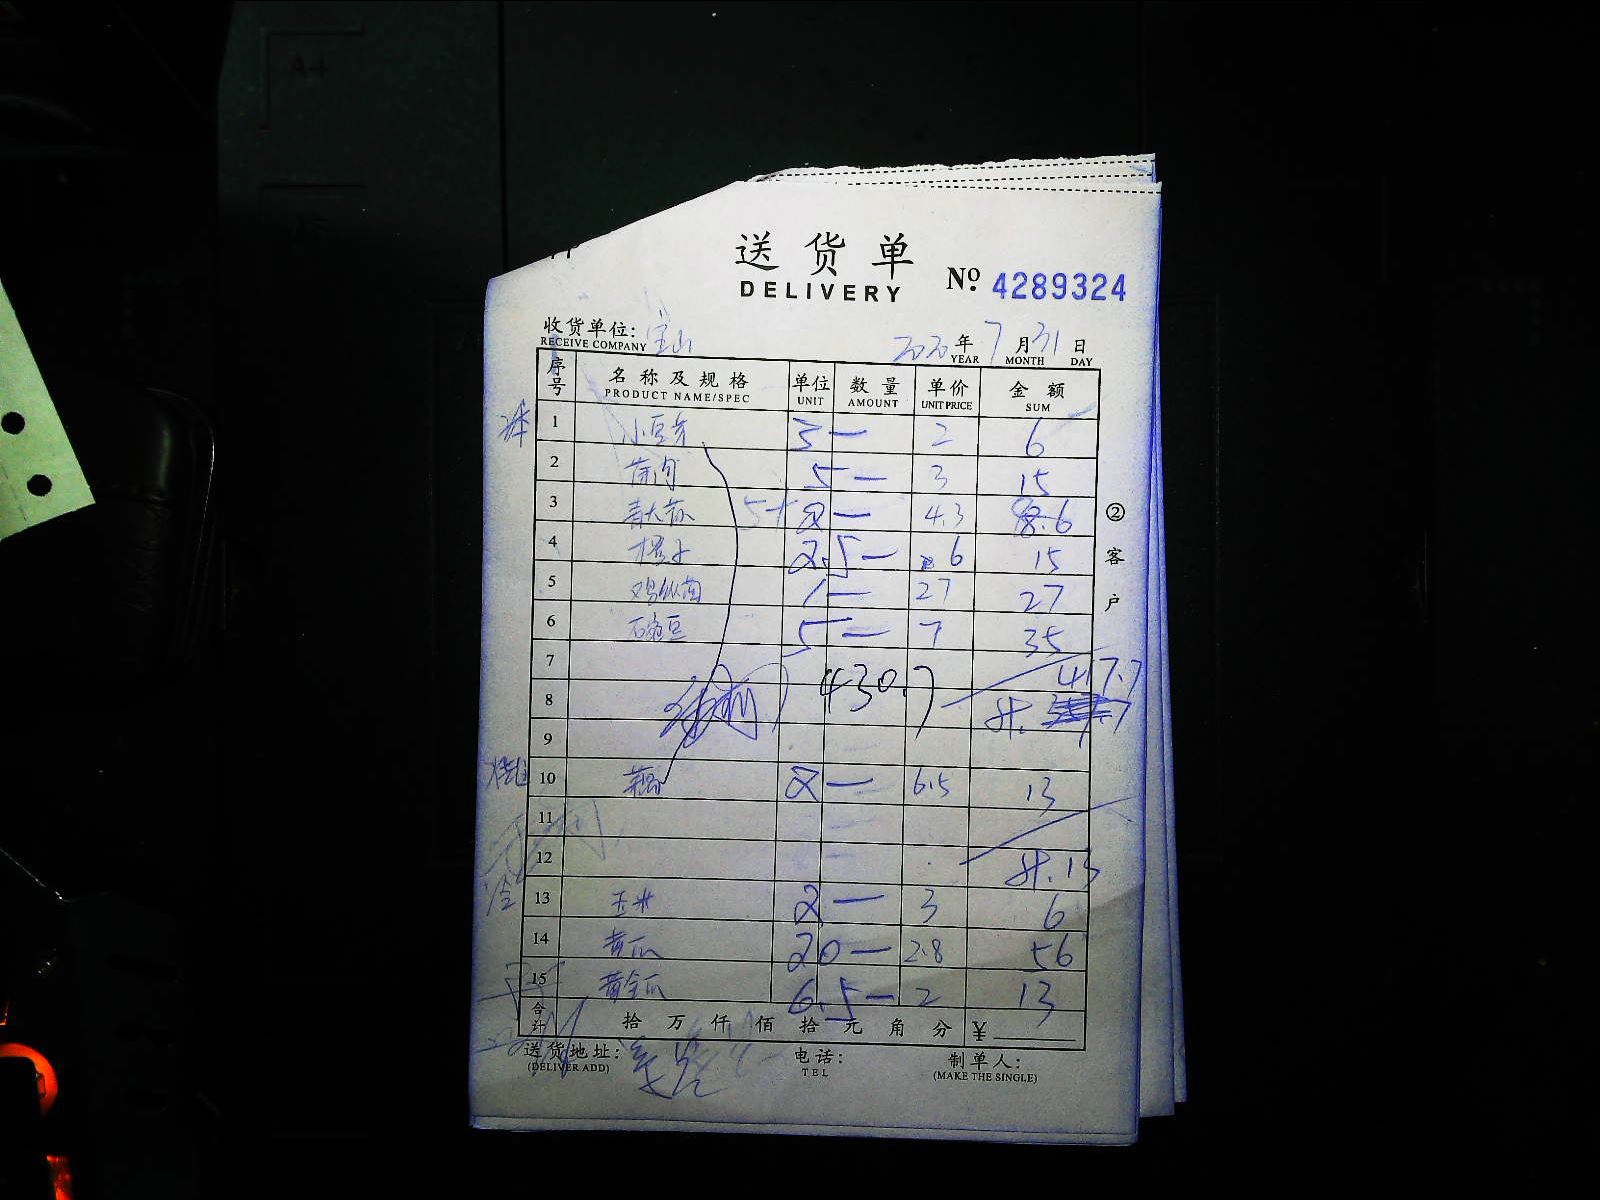 送货单
DELIVERY
Nº 4289324
收货单位: 宝山
RECEIVE COMPANY
2020 年 7 月 31 日
YEAR MONTH DAY
序号 名称及规格 单位 数量 单价 金额
PRODUCT NAME/SPEC UNIT AMOUNT UNIT PRICE SUM
1 小豆芽 3 — 2 6
2 5 — 3 15
3 2 — 4.3 8.6
4 2.5 — 6 15
5 鸡纵菌 1 — 27 27
6 豌豆 5 — 7 35
7 417.7
8 430.7
9
10 2 — 6.5 13
11
12 13
13 玉米 2 — 3 6
14 黄瓜 20 — 2.8 56
15 黄金瓜 6.5 — 2 13
合计 拾 万 仟 佰 拾 元 角 分 ¥
送货地址: 电话: 制单人:
(DELIVER ADD) TEL (MAKE THE SINGLE)
②客户